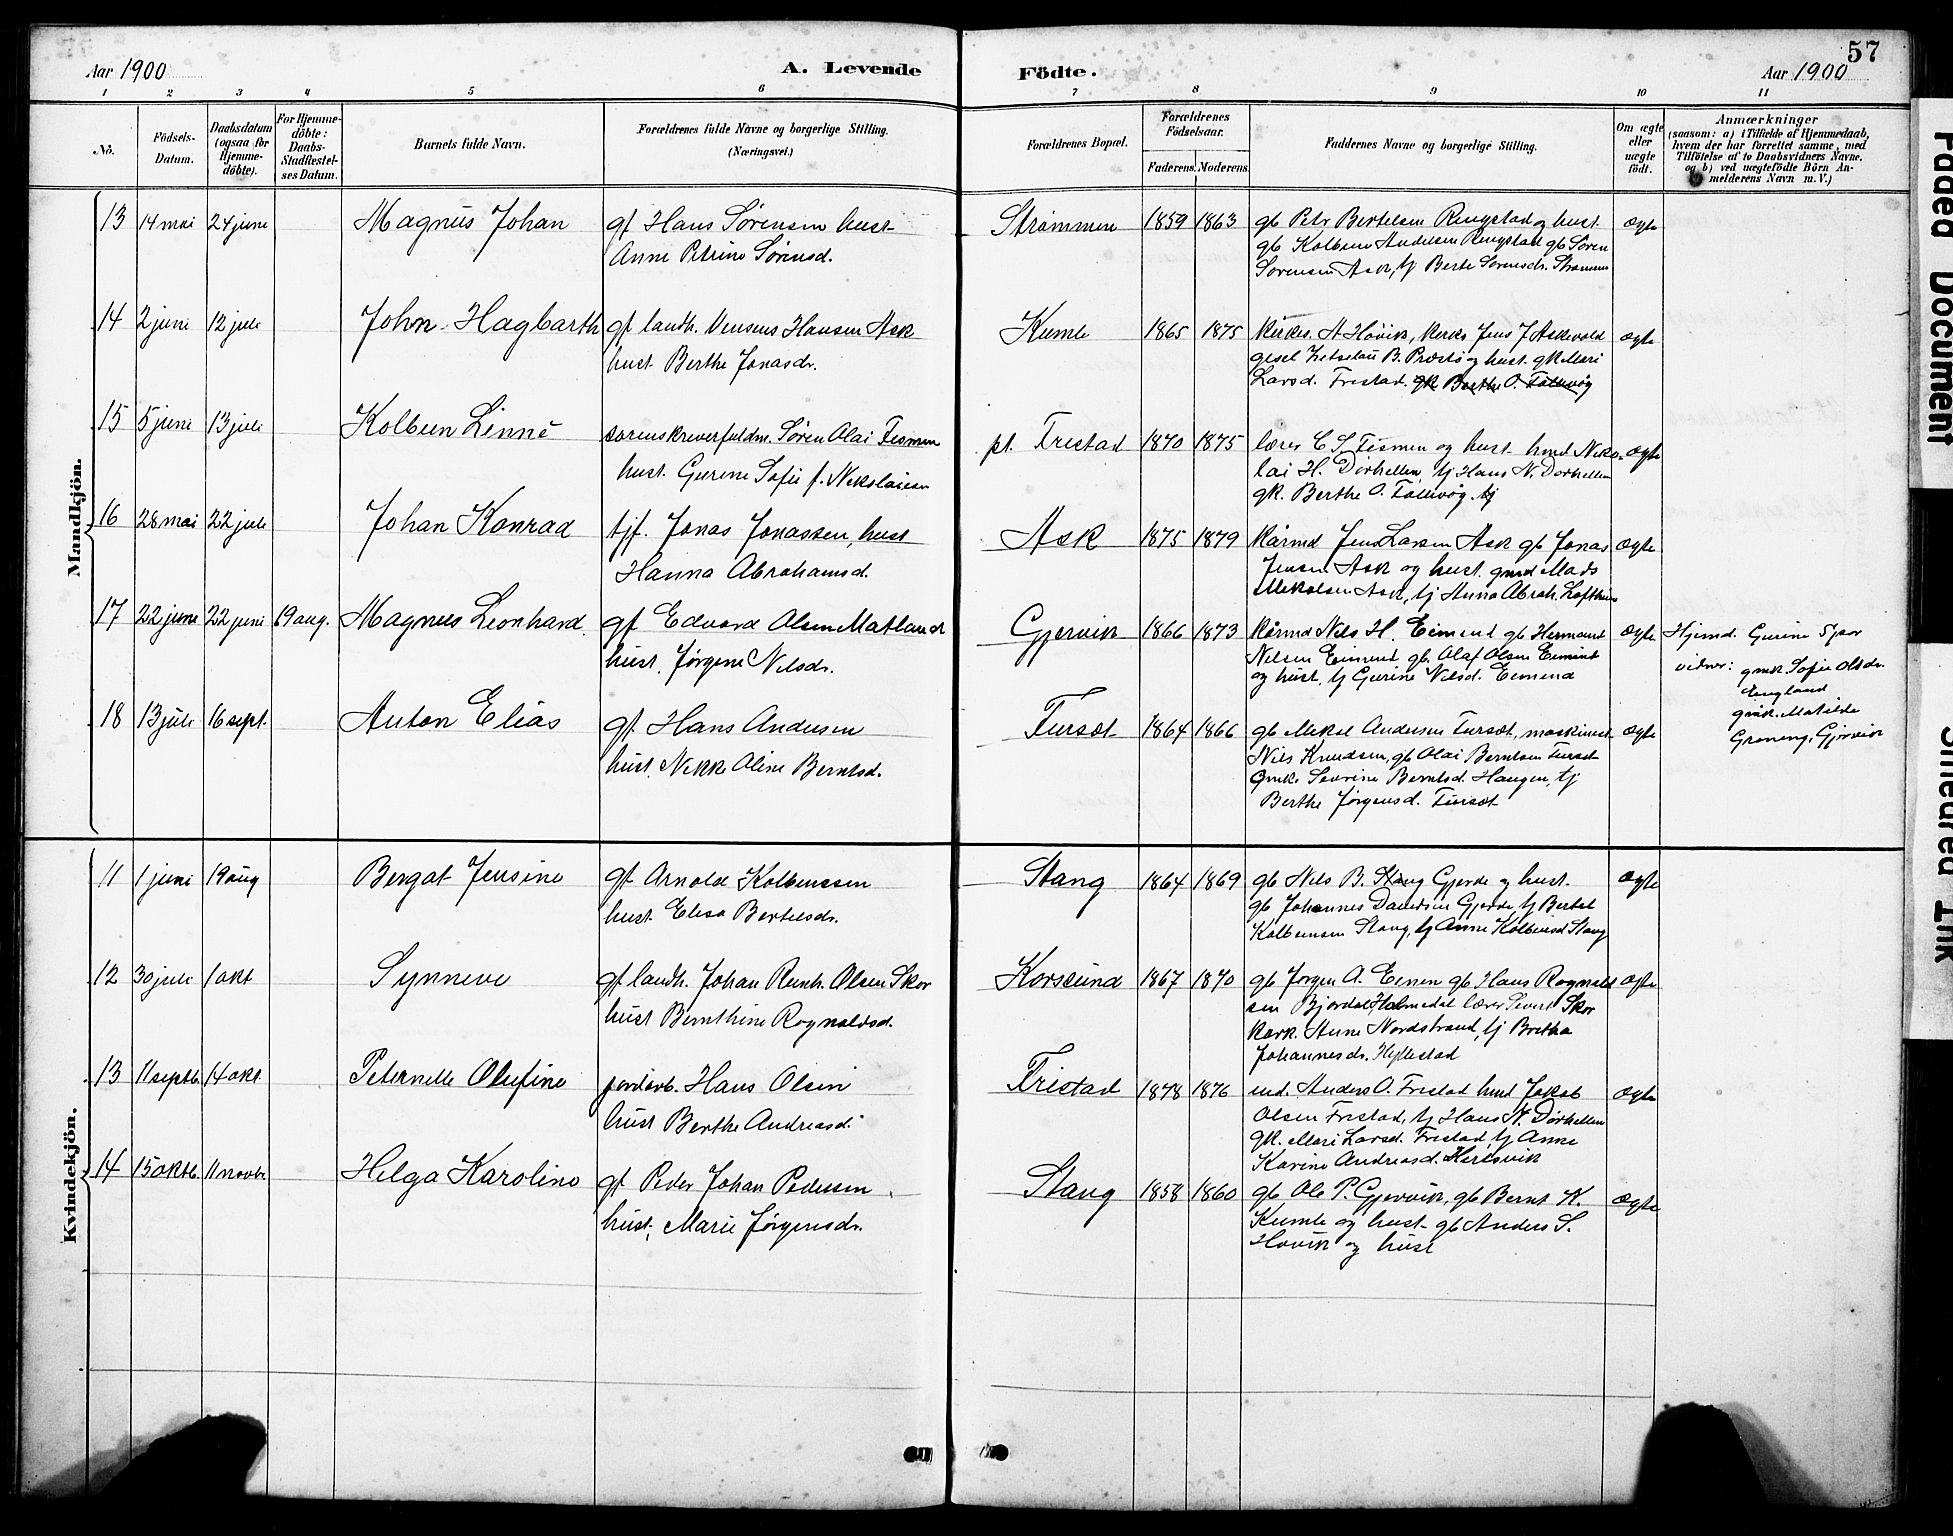 Aar 1900
A. Levende
Födte.
57
Aar 1900
1 2 3 4 5 6 7 8 9 10 11
No.
Födsels-Datum.
Daabsdatum (ogsaa for Hjemme-döbte).
For Hjemme-döbte: Daabs-Stadfæstel-ses Datum.
Barnets fulde Navn.
Forældrenes fulde Navne og borgerlige Stilling.
(Næringsvei.)
Forældrenes Bopæl.
Forældrenes Födselsaar.
Faderens. Moderens
Faddernes Navne og borgerlige Stilling.
Om ægte eller uægte födt.
Anmærkninger
(saasom: a) i Tilfælde af Hjemmedaab,
hvem der har forrettet samme, med
Tilföielse af to Daabsvidners Navne,
og b) ved uægtefödte Börn An-
melderens Navn m. V.)
Mandkjön.
13 14 mai 24 june Magnus Johan gf Hans Sørensen hust
Anne Petrine Sørensd.
Strømmen 1859 1863 gb Petr Bertelsen Ringstad og hust.
gb Kolben Andersen Ringstad gb Søren
Sørensen Ask, tj Berte Sørensdr. Strømmen
ægte
14 2 juni 12 juli John Hagbarth gf landh. Hansen Ask
hust. Berthe Jonasdr.
Kumle 1865 1875 kirkes. A Høvik, Jens J Askevold
B. Præstø og hust. gk Mari
Larsd. Fristad. gk Berthe O. Tollevøg
ægte
15 5 juni 13 juli Kolbein Linné sorenskriverfuldm. Søren Olai Tismen
hust. Gurine Sofie f. Nikolaisen
pt. Fristad 1870 1875 lærer C S. Tismen og hust hmd Niko-
lai H. Dørhellen, tj Hans N. Dørhellen
gk. Berthe O. Tollevøg. tj
ægte
16 28 mai 22 juli Johan Konrad tjf. Jonas Jonassen, hust
Hanna Abrahamsd.
Ask 1875 1879 kårmd Jens Larsen Ask gb Jonas
Jensen Ask og hust. gmd Mads
Mikalsen Ask, tj Anna Abrah. Lofthus
ægte
17 22 june 22 juni 19 aug. Magnus Leonhard. gf Edvard Olsen Matland
hust. Jørgine Nilsdr.
Gjervik 1866 1873 kårmd Nils H. Eimind gb Hermund
Nilsen Eimind gb. Olaf Olsen Eimind
og hust. tj Gurine Nilsd. Eimend
ægte
Hjemd. Gurine Sjaar
vidner: gmk. Sofie Olsdr.
England
gmk. Matilde
Grøning, Gjervik
18 13 juli 16 sept. Anton Elias gf Hans Andersen
hust. Nikke Oline Berntsd.
Fursæt 1864 1866 gb Mikal Andersen Fursæt, maskinist
Nils Knudsen, gb Olai Berntsen Fursæt
gmk. Severine Berntsd. Haugen, tj
Berthe Jørgensd. Fursæt
ægte
Kvindekjön.
11 1 juni 19 aug Bergat Jensine gf Arnold Kolbenssen
hust. Elisa Bertelsdr.
Stang 1864 1869 gb Nils B. Stang Gjerde og hust.
gb Johannes Davidsen Gjerde, tj Bertel
Kolbensen Stang, tj Anne Kolbensd Stang
ægte
12 30 juli 1 okt Synneve gf landh. Johan Reinh. Olsen Skor
hust Bernthine Rognaldsd.
Korssund 1867 1870 gb Jørgen A. Eimen gb Hans Rognald
sen Bjordal, Holmedal lærer Sivert Skor
kark. Anne Nordstrand, tj Bretha
Johannesdr. Hyllestad
ægte
13 11 septb. 14 okt Peternelle Olufine jordarb. Hans Olsen
hust Berthe Andreasd.
Fristad 1878 1876 ind. Anders O. Fristad hmd Jakob
Olsen Fristad, tj Hans N. Dørhellen
gk. Mari Larsd. Fristad, tj Anne
Karine Andreasd. Herisvik
ægte
14 15 oktb. 11 novbr. Helga Karoline gf Peder Johan Pedersen
hust, Marie Jørgensdr.
Stang 1858 1860 gb Ole P. Gjervik, gb Bernt K.
Kumle og hust. gb Anders S.
Høvik og hust
ægte
Faded Document
Smeared Ink